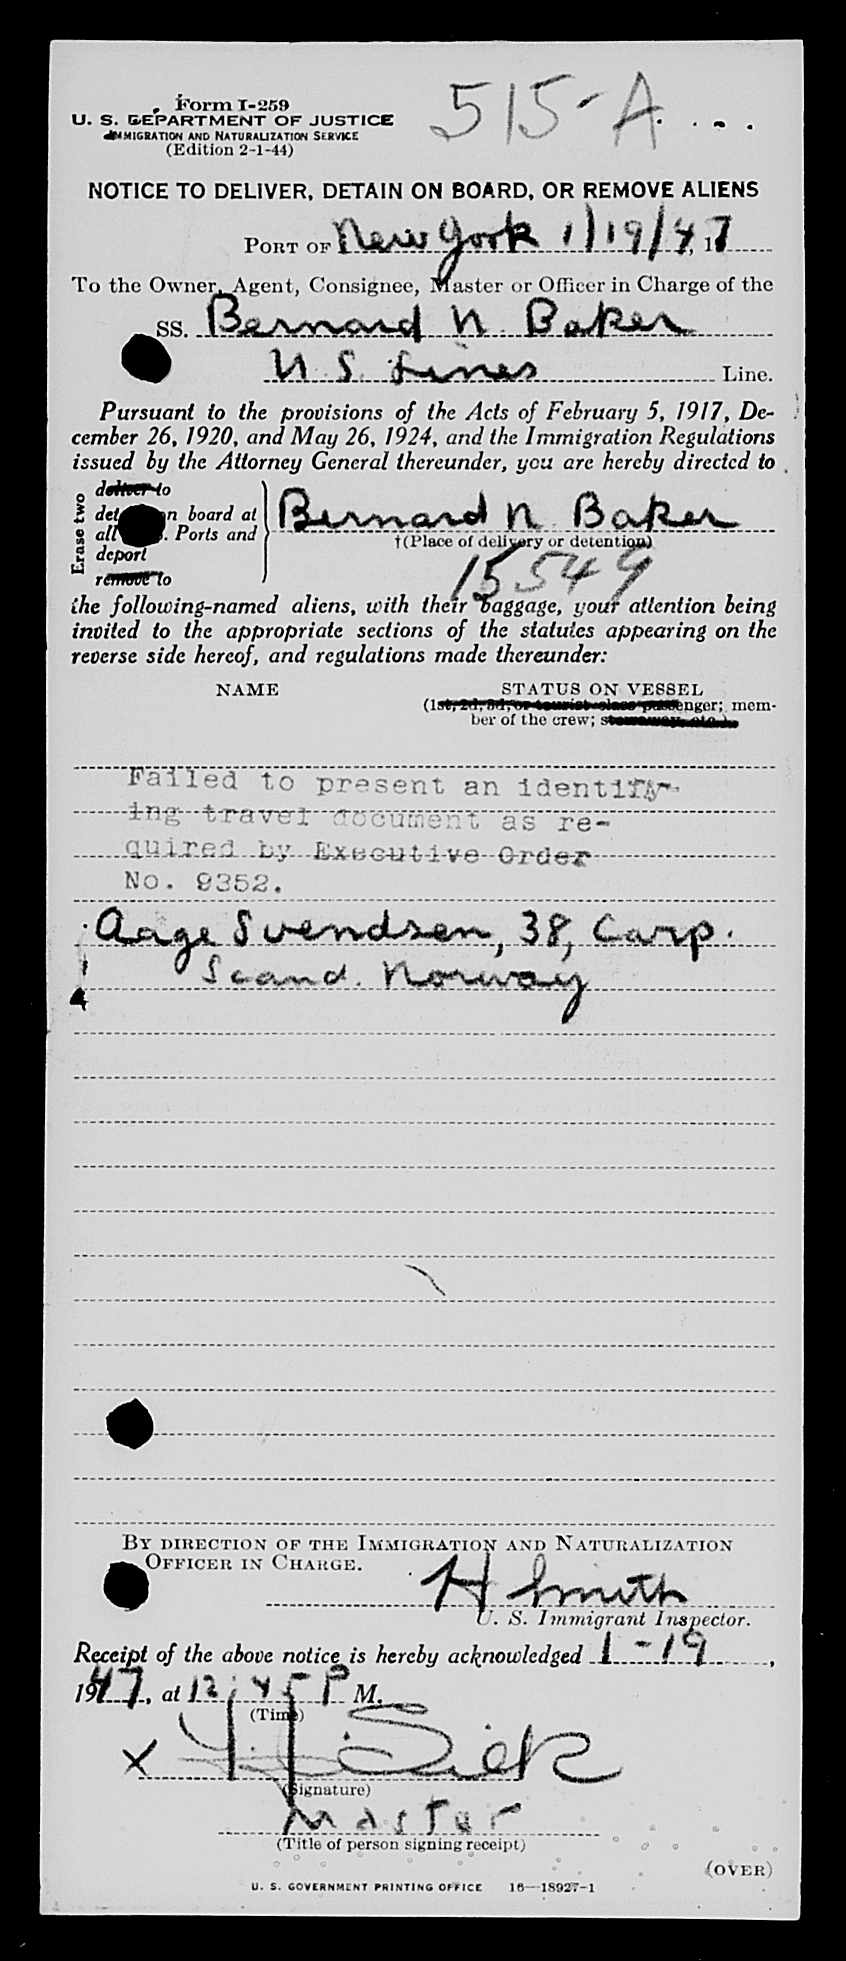 Form I-259
515-A
U. S. DEPARTMENT OF JUSTICE
IMMIGRATION AND NATURALIZATION SERVICE
(Edition 2-1-44)
NOTICE TO DELIVER, DETAIN ON BOARD, OR REMOVE ALIENS
PORT OF New York 1/19/47, 1
To the Owner, Agent, Consignee, Master or Officer in Charge of the
SS. Bernard N. Baker
U. S. Lines Line.
Pursuant to the provisions of the Acts of February 5, 1917, De-
cember 26, 1920, and May 26, 1924, and the Immigration Regulations
issued by the Attorney General thereunder, you are hereby directed to
Erase two
deliver to
det n board at
all . Ports and
deport
remove to
Bernard N. Baker
†(Place of delivery or detention)
15549
the following-named aliens, with their baggage, your attention being
invited to the appropriate sections of the statutes appearing on the
reverse side hereof, and regulations made thereunder:
NAME STATUS ON VESSEL
(1st, 2d, 3d, or tourist class passenger; mem-
ber of the crew; stowaway, etc.)
Failed to present an identify-
ing travel document as re-
quired by Executive Order
No. 9352.
Aage Svendsen, 38, Carp.
Scand. Norway
BY DIRECTION OF THE IMMIGRATION AND NATURALIZATION
OFFICER IN CHARGE.
H Smith
U. S. Immigrant Inspector.
Receipt of the above notice is hereby acknowledged 1-19,
1947, at 12:45 P M.
(Time)
X
(Signature)
Master
(Title of person signing receipt)
(OVER)
U. S. GOVERNMENT PRINTING OFFICE 16—18927-1